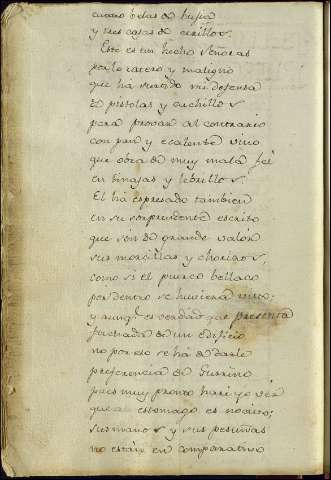 cuatro belas de
y tres casas de
Este es un hecho Señores
por lo ratero y maligno
que ha venido mi defensa
de pistolas y cuchillos
para provar al contrario
con pan y ecalente vino
que obra de muy mala fei
en tinajas y lebrillos
El há espresado tambien
en su sorprendente escrito
que són de grande valór
sus morcillas y chorizos
como si el puerco bellaco
por dentro se huviera visto;
y aunq.e es verdad que presenta
fachada de un edificio
no por eso se há de darle
preferencia de
pues muy pronto hari yo vér
que al estomago es nocivo;
sus manos y sus pesuñas
no están en comparativo